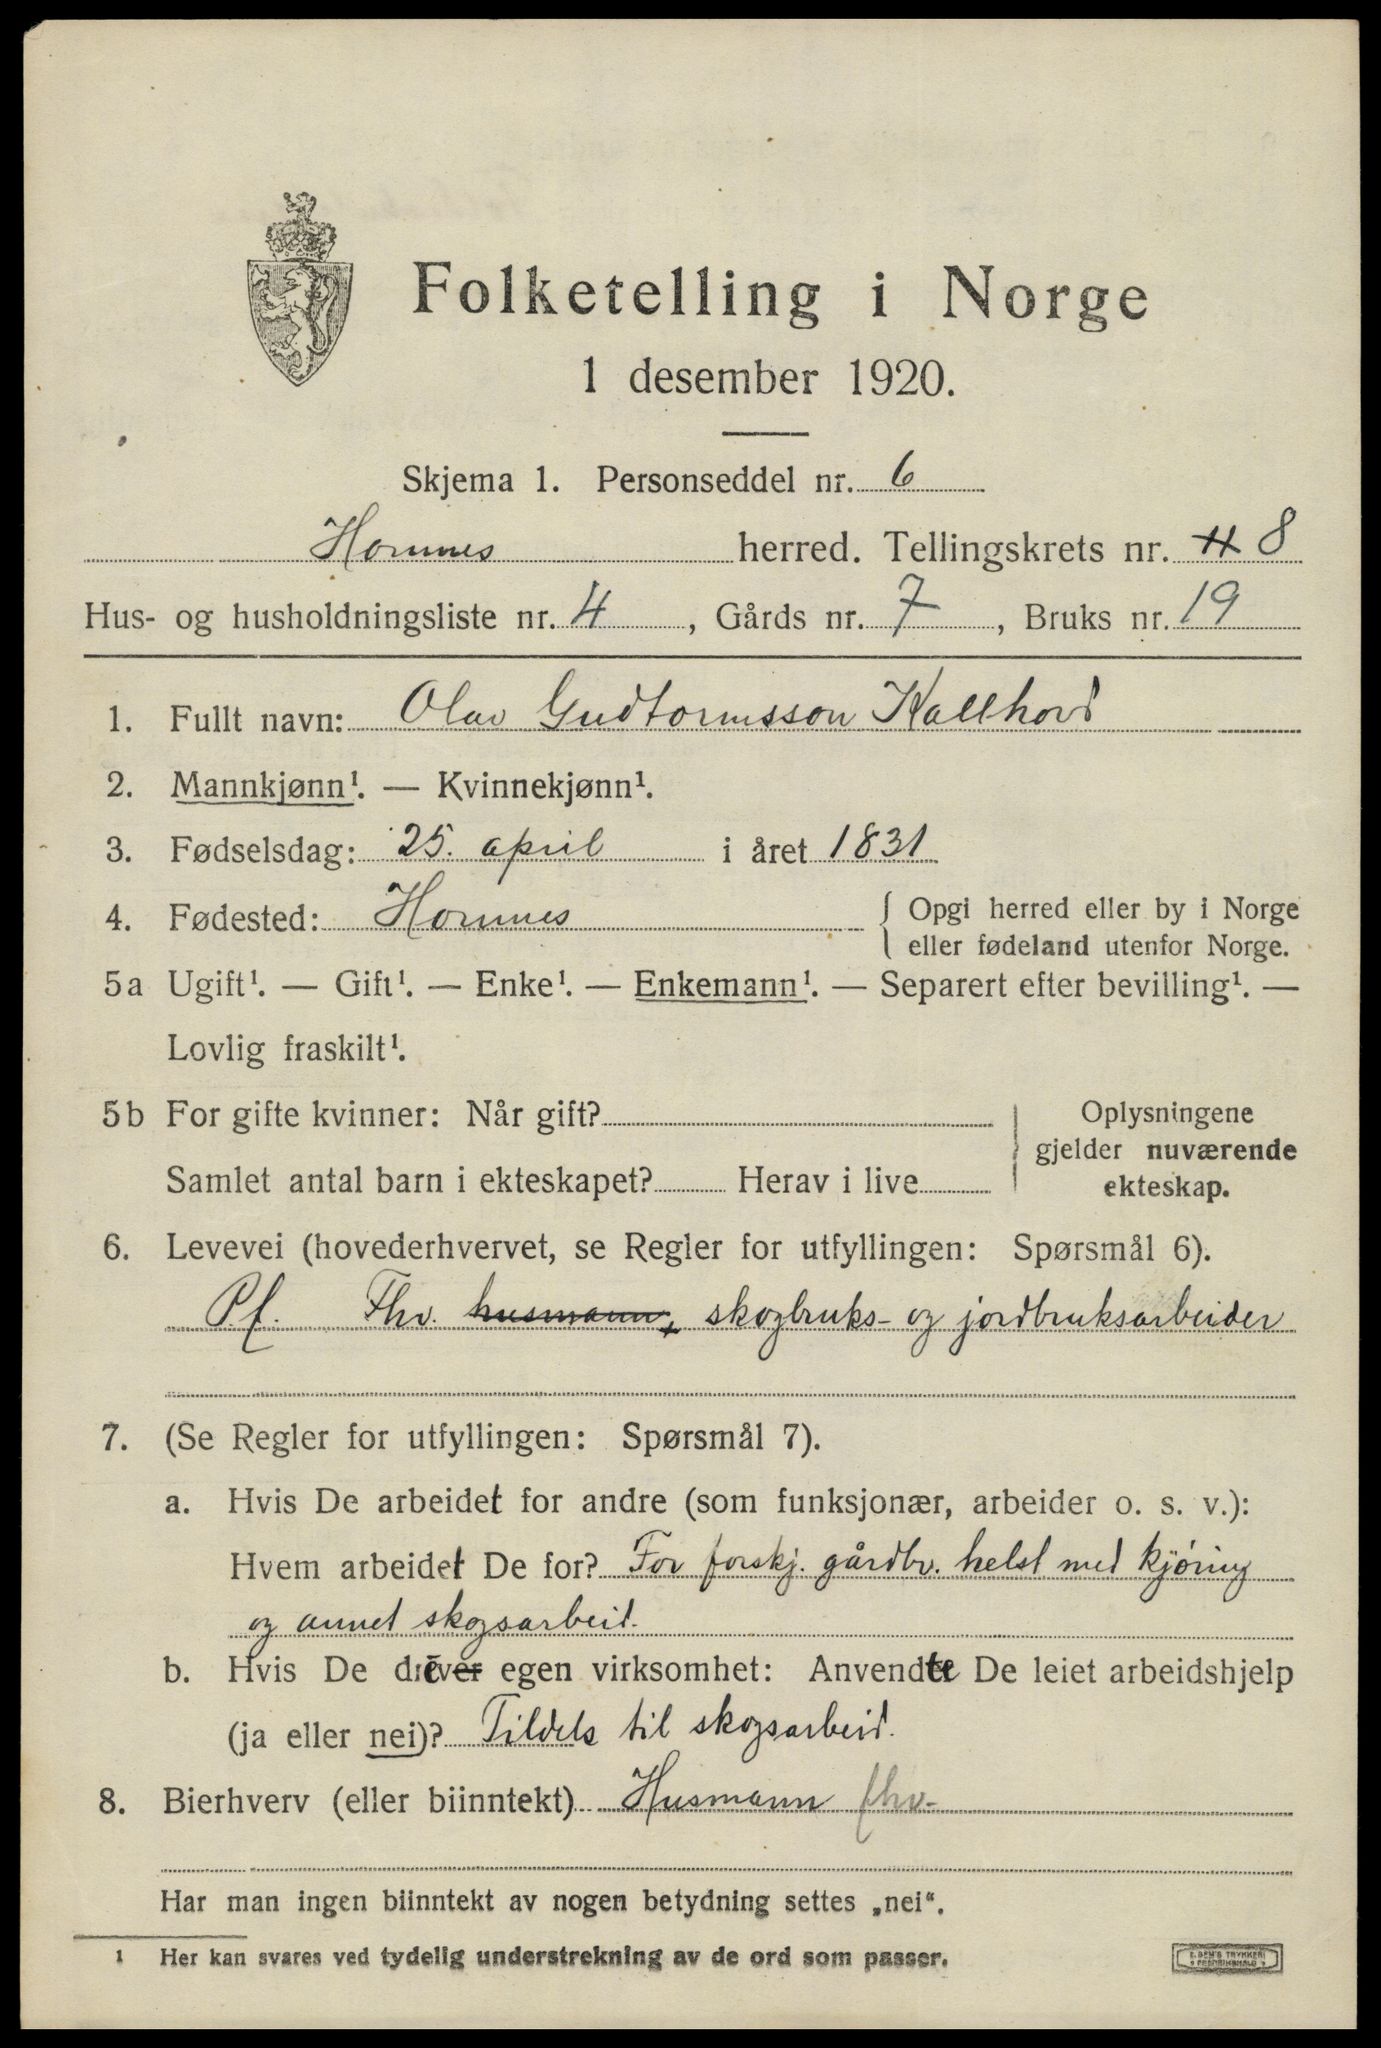 Folketelling i Norge
1 desember 1920.
Skjema 1. Personseddel nr. 6
Hornnes herred. Tellingskrets nr. 8
Hus- og husholdningsliste nr. 4, Gårds nr. 7, Bruks nr. 19
1. Fullt navn: Olav Gudtormsson Kallhovd
2. Mannkjønn¹. — Kvinnekjønn¹.
3. Fødselsdag: 25. april i året 1831
4. Fødested: Hornnes { Opgi herred eller by i Norge
eller fødeland utenfor Norge.
5a Ugift¹. — Gift¹. — Enke¹. — Enkemann¹. — Separert efter bevilling¹. —
Lovlig fraskilt¹.
5b For gifte kvinner: Når gift? Oplysningene
gjelder nuværende
Samlet antal barn i ekteskapet? Herav i live ekteskap.
6. Levevei (hovederhvervet, se Regler for utfyllingen: Spørsmål 6).
Pf. Fhv. husmann, skogbruks- og jordbruksarbeider
7. (Se Regler for utfyllingen: Spørsmål 7).
a. Hvis De arbeidet for andre (som funksjonær, arbeider o. s. v.):
Hvem arbeidet De for? For forskj. gårdbr. helst med kjøring
og annet skogsarbeid.
b. Hvis De drev egen virksomhet: Anvendte De leiet arbeidshjelp
(ja eller nei)? Tildels til skogsarbeid.
8. Bierhverv (eller biinntekt) Husmann fhv.
Har man ingen biinntekt av nogen betydning settes „nei“.
¹ Her kan svares ved tydelig understrekning av de ord som passer.